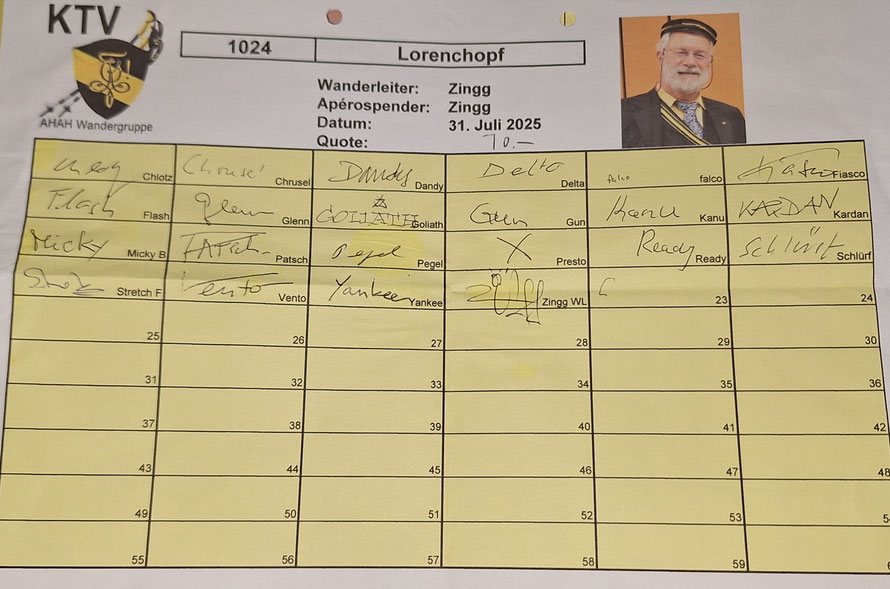 KTV
1024 Lorenchopf
AHAH Wandergruppe
Wanderleiter: Zingg
Apérospender: Zingg
Datum: 31. Juli 2025
Quote: 70.-
Chlotz Chrusel Chrusel Dandy Dandy Delta Delta falco falco Fiasco Fiasco
Flash Flash Glenn Glenn GOLIATH Goliath Gun Gun Kanu Kanu KARDAN Kardan
Micky Micky B PATSCH Patsch Pegel Pegel X Presto Ready Ready Schlürf Schlürf
Stretch F Vento Vento Yankee Yankee Zingg WL 23 24
25 26 27 28 29 30
31 32 33 34 35 36
37 38 39 40 41 42
43 44 45 46 47 48
49 50 51 52 53
55 56 57 58 59